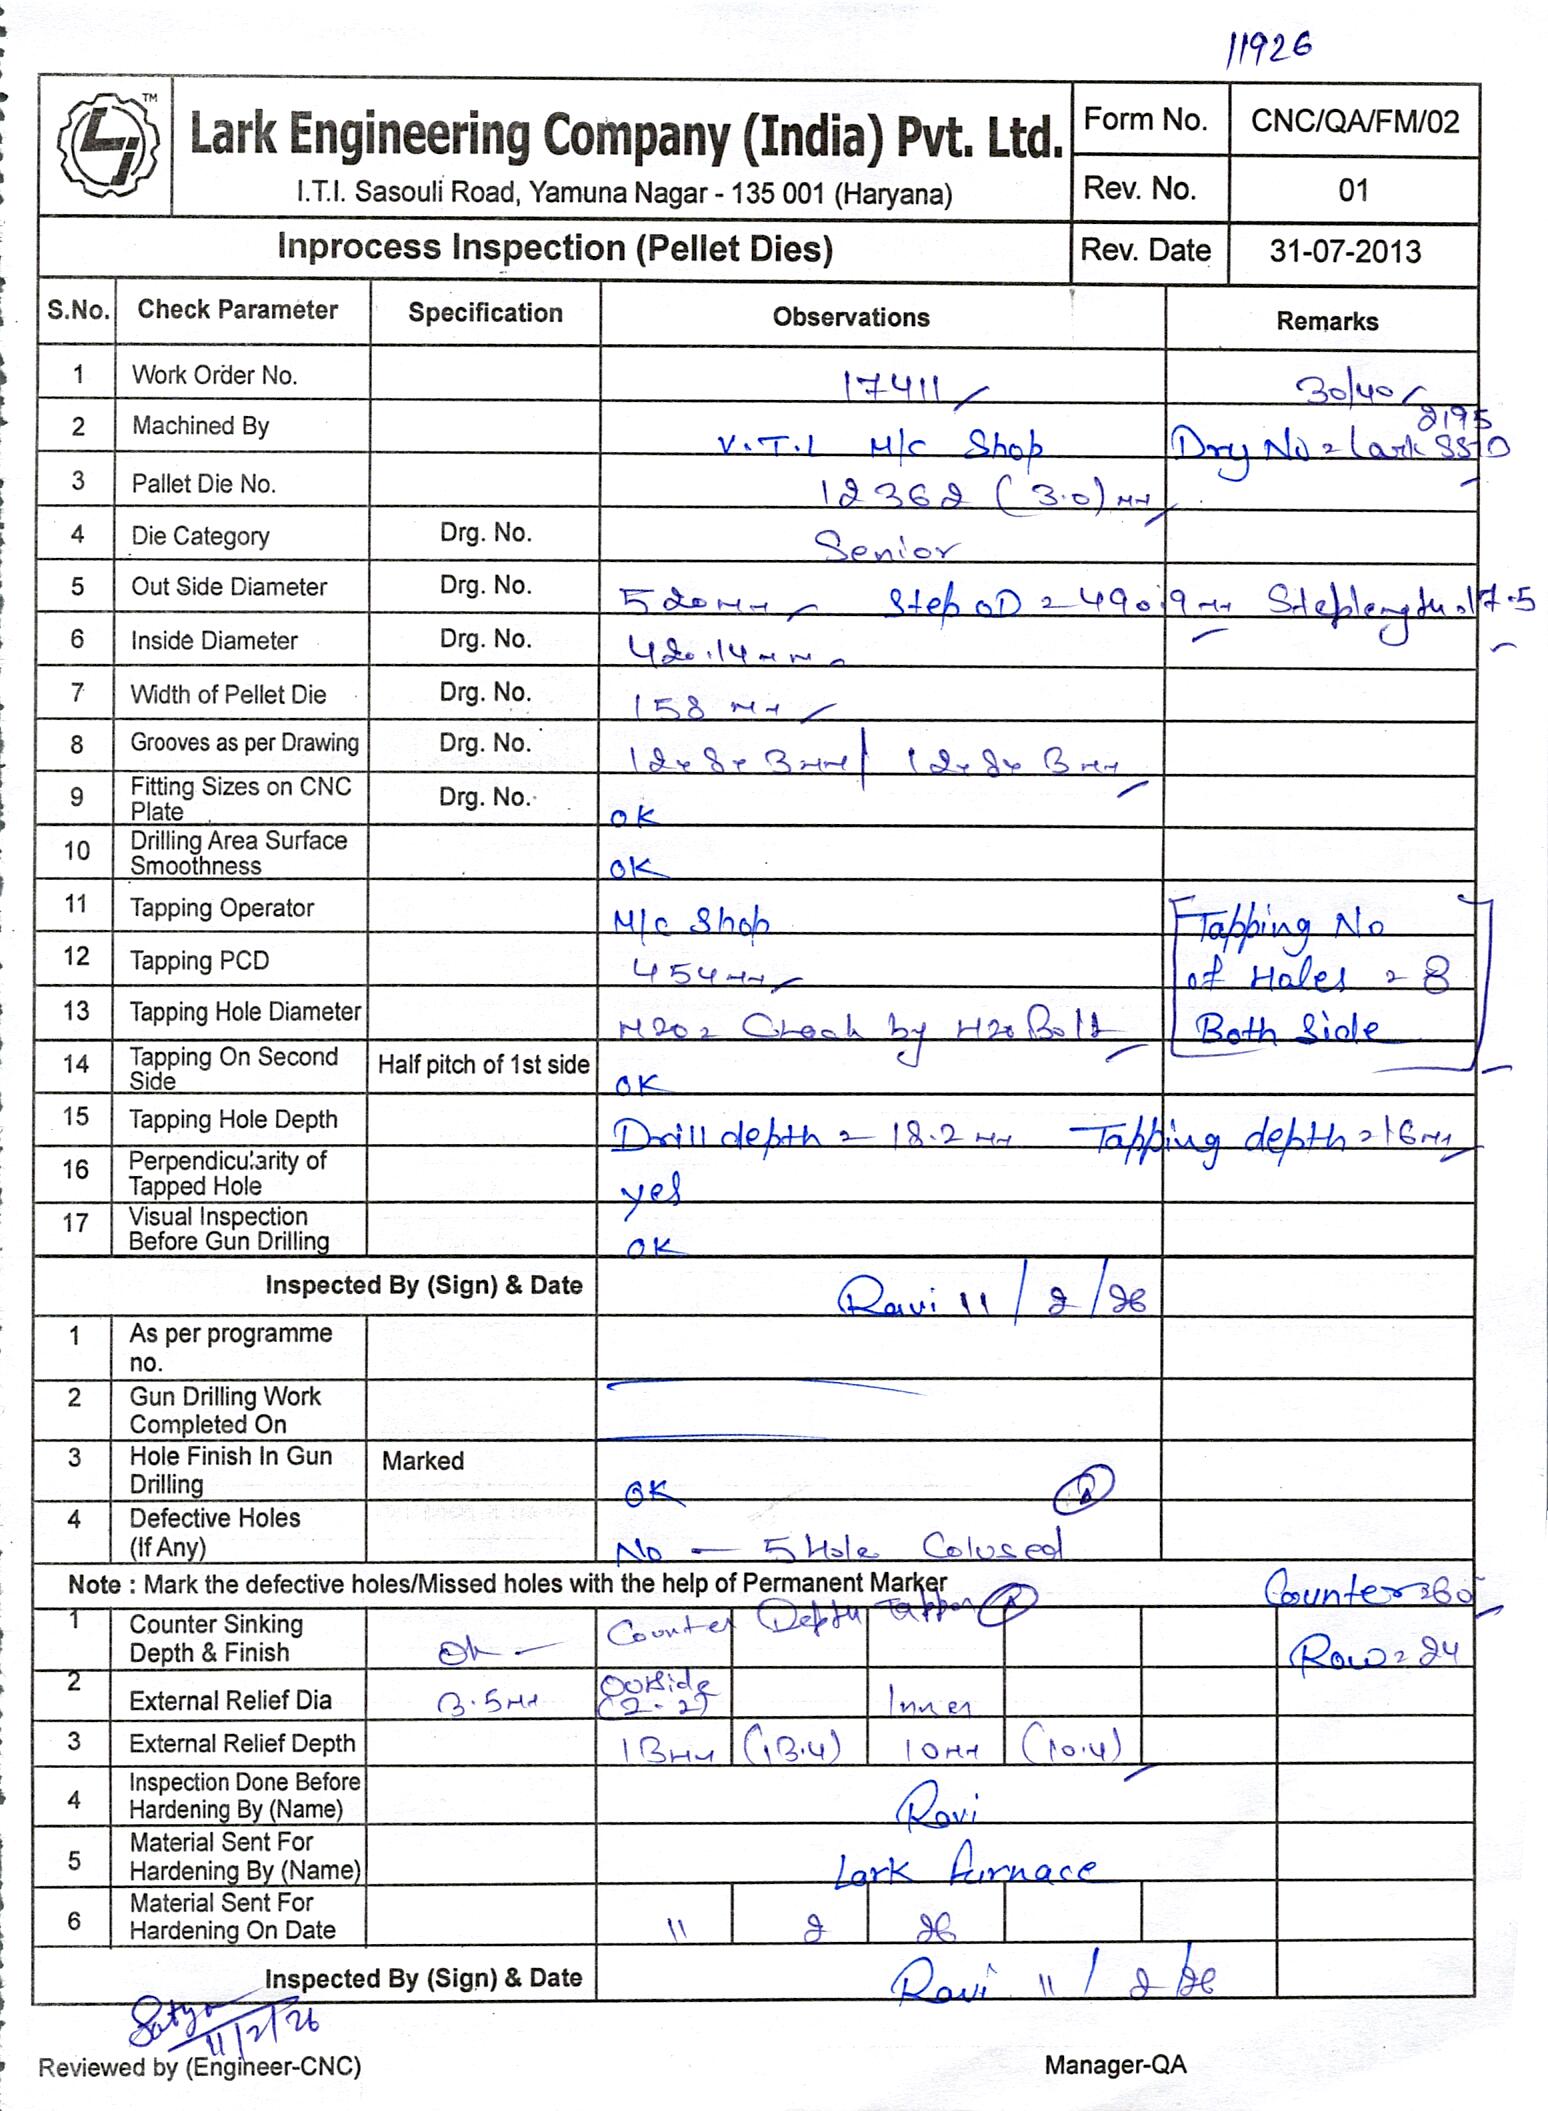 11926
TM
Lark Engineering Company (India) Pvt. Ltd.
I.T.I. Sasouli Road, Yamuna Nagar - 135 001 (Haryana)
Form No. CNC/QA/FM/02
Rev. No. 01
Inprocess Inspection (Pellet Dies) Rev. Date 31-07-2013
S.No. Check Parameter Specification Observations Remarks
1 Work Order No. 17411 30/40
2 Machined By V.T.L M/c Shop 2195
3 Pallet Die No. 12362 (3.0) mm
4 Die Category Drg. No. Senior
5 Out Side Diameter Drg. No. 520 mm Step OD = 490.9 mm Steplength 17.5
6 Inside Diameter Drg. No. 420.14 mm
7 Width of Pellet Die Drg. No. 158 mm
8 Grooves as per Drawing Drg. No. 12x8x3mm / 12x8x3mm
9 Fitting Sizes on CNC Plate Drg. No. OK
10 Drilling Area Surface Smoothness OK
11 Tapping Operator M/c Shop Tapping No
12 Tapping PCD 454mm of Holes = 8
13 Tapping Hole Diameter M20 = Check by M20 Bolt Both Side
14 Tapping On Second Side Half pitch of 1st side OK
15 Tapping Hole Depth Drill depth = 18.2 mm Tapping depth = 16mm
16 Perpendicularity of Tapped Hole yes
17 Visual Inspection Before Gun Drilling OK
Inspected By (Sign) & Date Ravi 11/2/26
1 As per programme no.
2 Gun Drilling Work Completed On
3 Hole Finish In Gun Drilling Marked OK
4 Defective Holes (If Any) No - 5 Hole Colused
Note : Mark the defective holes/Missed holes with the help of Permanent Marker Counter = 60
1 Counter Sinking Depth & Finish Ok - Counter Depth Row = 24
2 External Relief Dia 3.5mm Outside (2-2) Inner
3 External Relief Depth 13mm (13.4) 10mm (10.4)
4 Inspection Done Before Hardening By (Name) Ravi
5 Material Sent For Hardening By (Name) Lark Furnace
6 Material Sent For Hardening On Date 11 2 26
Inspected By (Sign) & Date Ravi 11/2/26
Satya
11/2/26
Reviewed by (Engineer-CNC) Manager-QA